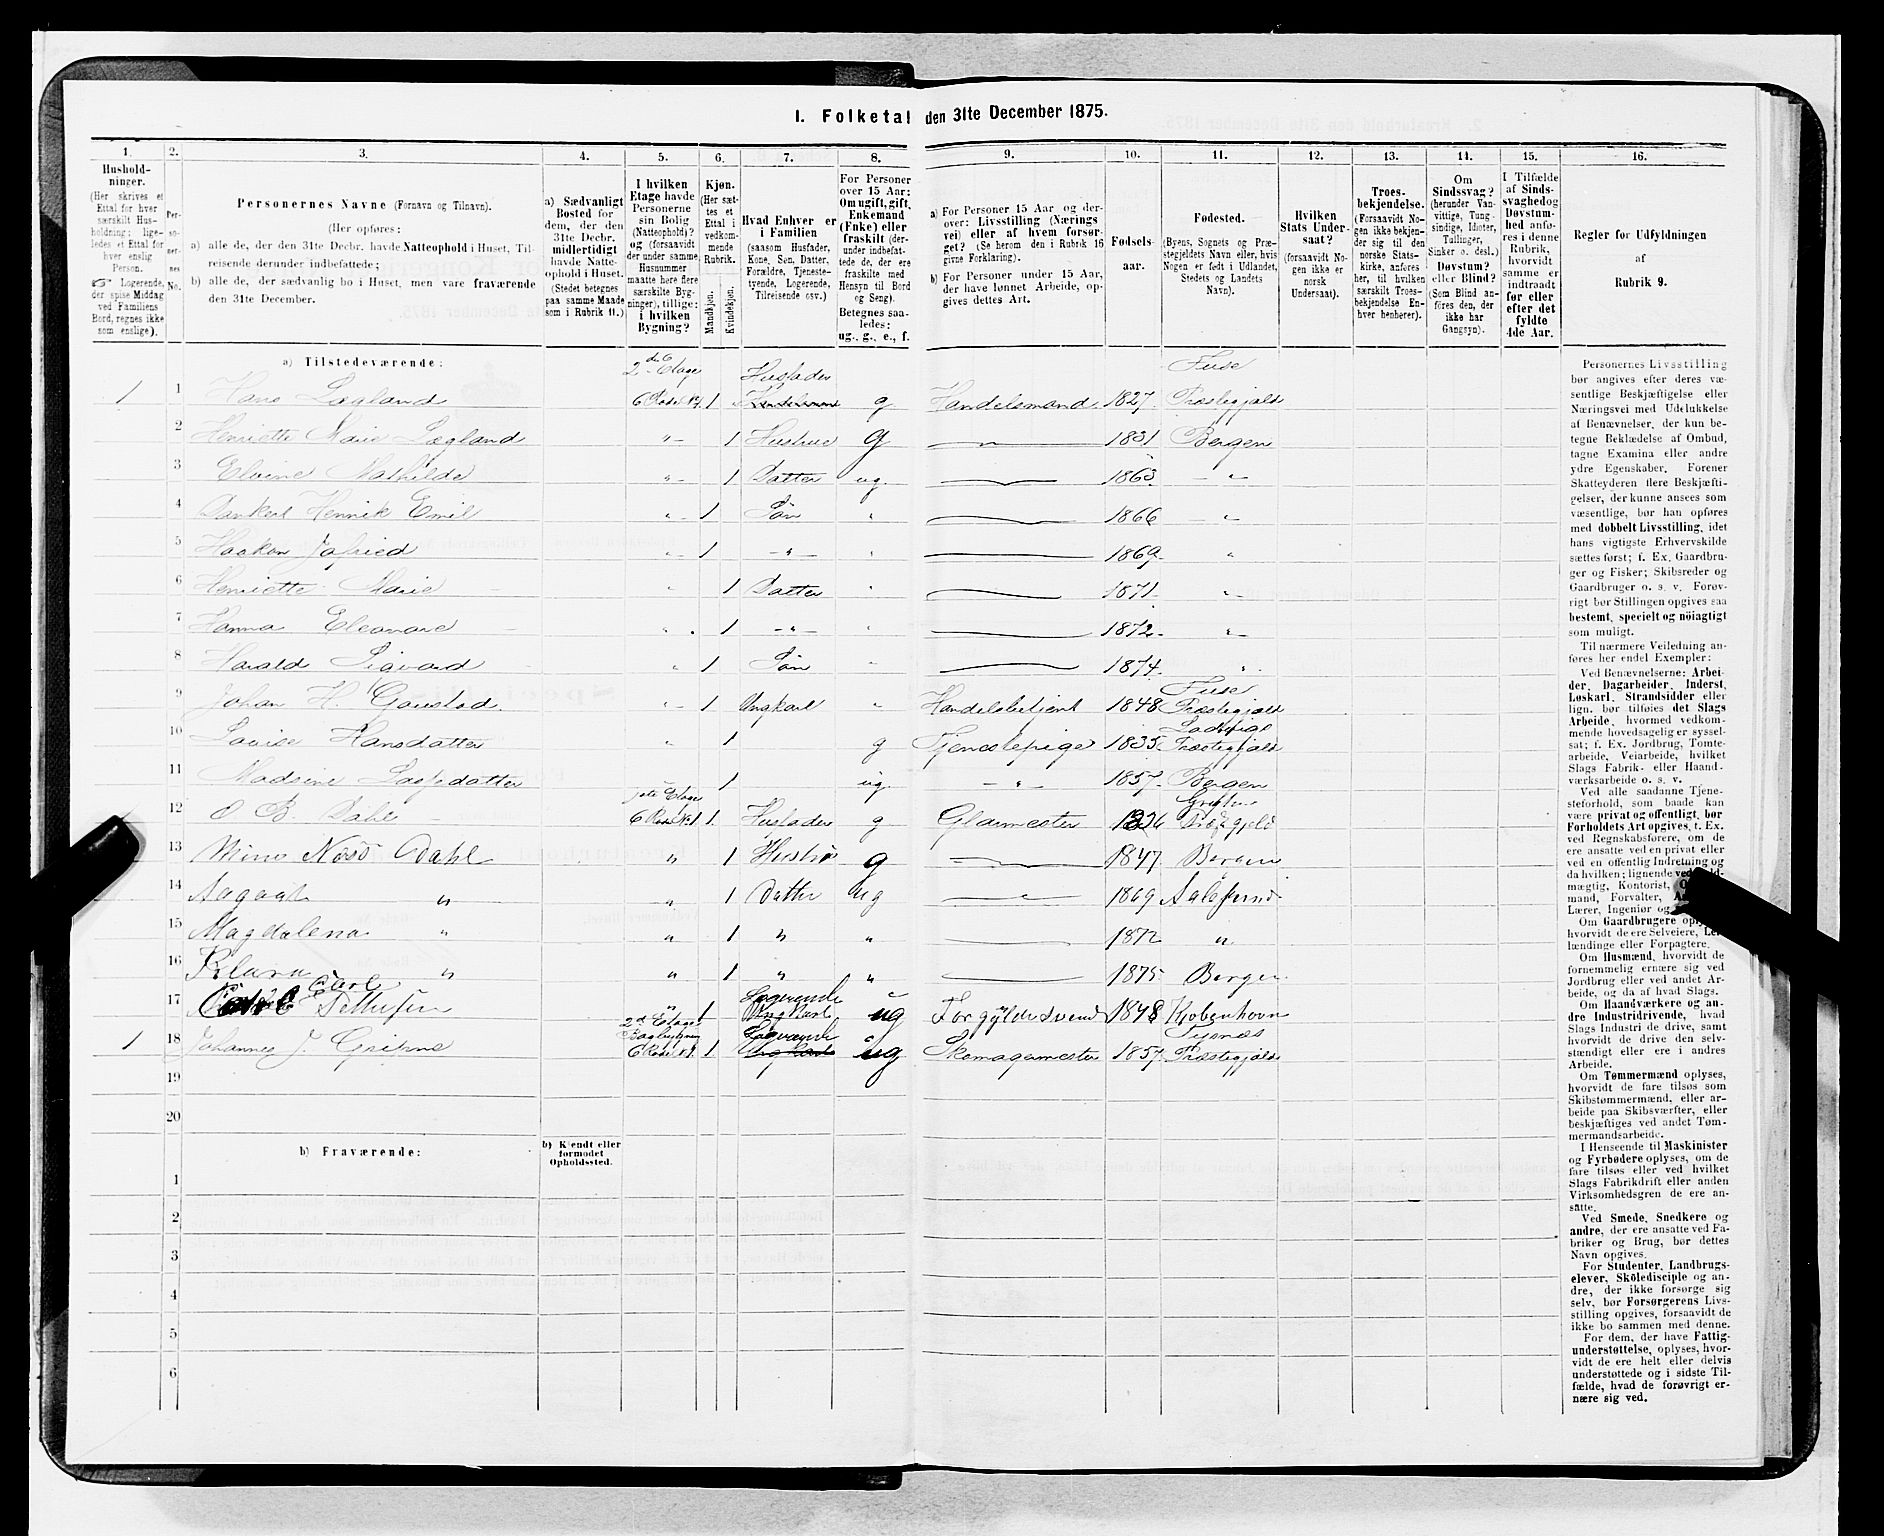 1. Folketal den 31te December 1875.
1. 2. 3. 4. 5. 6. 7. 8. 9. 10. 11. 12. 13. 14. 15. 16.
Hushold-
ninger.
(Her skrives et
Ettal for hver
særskilt Hus-
holdning; lige-
ledes et Ettal for
hver enslig
Person.
☞ Logerende,
der spise Middag
ved Familiens
Bord, regnes ikke
som enslige).
Per-
so-
ner-
nes
No.
Personernes Navne (Fornavn og Tilnavn).
(Her opføres:
a) alle de, der den 31te Decbr. havde Natteophold i Huset, Til-
reisende derunder indbefattede;
b) alle de, der sædvanlig bo i Huset, men vare fraværende
den 31te December.
a) Sædvanligt
Bosted for
dem, der den
31te Decbr.
midlertidigt
havde Natte-
ophold i Huset.
(Stedet betegnes
paa samme Maade
som i Rubrik 11.)
I hvilken
Etage havde
Personerne
sin Bolig
(Natteophold)?
og (forsaavidt
der under samme
Husnummer
maatte høre flere
særskilte Byg-
ninger), tillige:
i hvilken
Bygning?
Kjøn.
(Her sæt-
tes et
Ettal i
vedkom-
mende
Rubrik.
Mandkjøn.
Kvindekjøn.
Hvad Enhver er
i Familien
(saasom Husfader,
Kone, Søn, Datter,
Forældre, Tjeneste-
tyende, Logerende,
Tilreisende osv.)
For Personer
over 15 Aar:
Om ugift, gift,
Enkemand
(Enke) eller
fraskilt (der-
under indbefat-
tede de, der ere
fraskilte med
Hensyn til Bord
og Seng).
Betegnes saa-
ledes:
ug., g., e., f.
a) For Personer 15 Aar og der-
over: Livsstilling (Nærings
vei) eller af hvem forsør-
get? (Se herom den i Rubrik 16
givne Forklaring).
b) For Personer under 15 Aar,
der have lønnet Arbeide, op-
gives dettes Art.
Fødsels-
aar.
Fødested.
(Byens, Sognets og Præ-
stegjeldets Navn eller, hvis
Nogen er født i Udlandet,
Stedets og Landets
Navn).
Hvilken
Stats Under-
saat?
(forsaavidt No-
gen ikke er
norsk
Undersaat).
Troes-
bekjendelse.
(Forsaavidt No-
gen ikke bekjen-
der sig til den
norske Stats-
kirke, anføres
her, til hvilken
særskilt Troes-
bekjendelse En-
hver henhører).
Om
Sindssvag?
(herunder Van-
vittige, Tung-
sindige, Idioter,
Tullinger,
Sinker o. desl.)
Døvstum?
eller Blind?
(Som Blind an-
føres den, der
ikke har
Gangsyn).
I Tilfælde
af Sinds-
svaghed og
Døvstum-
hed anfø-
res i denne
Rubrik,
hvorvidt
samme er
indtraadt
før eller
efter det
fyldte
4de Aar.
Regler for Udfyldningen
af
Rubrik 9.
a) Tilstedeværende:
2den Etage Husfader Fuse
1 1 Hans Lægland 6 Rode 1 g Handelsmand 1827 Præstegjeld
2 Henriette Marie Lægland " 1 Hustrue g " 1831 Bergen
3 Elvine Mathilde " 1 Datter ug 1863 "
4 Dankert Henrik Emil " 1 Søn " 1866 "
5 Haakon " 1 " " 1869 "
6 Henriette Marie " 1 Datter " 1871 "
7 Hanna " 1 " 1872 "
8 Harald Sigvard " 1 Søn " 1874 "
Fuse
9 Johan H. Gaustad " 1 Ungkarl " Handelsbetjent 1848 Præstegjeld
10 Lovise Hansdatter " 1 g Tjenestepige 1835 Præstegjeld
11 Madsine 1 ug " 1857 Bergen
Etage
12 O B. Dahl 6 Rode N 1 1 Husfader g Glarmester 1826
13 Mina Dahl " 1 Hustru g " 1847 Bergen
14 Aagaat " " 1 Datter ug " 1869 Aalesund
15 Magdalena " " 1 " " 1872 "
16 Klara " " 1 " " 1875 Bergen
Carl Logerende
17 " 1 Ungkarl ug Forgyldersvend 1848 Kjøbenhavn
2d Etage Bagbygning Logerende Tysnæs
1 18 Johannes J. 6 Rode N 1 1 ug Skomagermester 1857 Præstegjeld
19
20
b) Fraværende:
b) Kjendt eller
formodet
Opholdssted.
1
2
3
4
5
6
Personernes Livsstilling
bør angives efter deres væ-
sentlige Beskjæftigelse eller
Næringsvei med Udelukkelse
af Benævnelser, der kun be-
tegne Beklædelse af Ombud,
tagne Examina eller andre
ydre Egenskaber. Forener
Skatteyderen flere Beskjæfti-
gelser, der kunne ansees som
væsentlige, bør han opføres
med dobbelt Livsstilling, idet
hans vigtigste Erhvervskilde
sættes først; f. Ex. Gaardbru-
ger og Fisker; Skibsreder og
Gaardbruger o. s. v. Forøv-
rigt bør Stillingen opgives saa
bestemt, specielt og nöiagtigt
som muligt.
Til nærmere Veiledning an-
føres her endel Exempler:
Ved Benævnelserne: Arbei-
der, Dagarbeider, Inderst,
Løskarl, Strandsidder eller
lign. bør tilføies det Slags
Arbeide, hvormed vedkom-
mende hovedsagelig er syssel-
sat; f. Ex. Jordbrug, Tomte-
arbeide, Veiarbeide, hvilket
Slags Fabrik- eller Haand-
værksarbeide o. s. v.
Ved alle saadanne Tjene-
steforhold, som baade kan
være privat og offentligt, bør
Forholdets Art opgives, t. Ex.
ved Regnskabsførere, om de
ere ansatte ved en privat eller
ved en offentlig Indretning og
da hvilken; lignende ved
mægtig, Kontorist,
mand, Forvalter,
Lærer, Ingeniør og
Om Gaardbrugere oply-
hvorvidt de ere Selveiere, Lei-
lændinge eller Forpagtere.
Om Husmænd, hvorvidt de
fornemmelig ernære sig ved
Jordbrug eller ved andet Ar-
beide, og da af hvad Slags.
Om Haandværkere og an-
dre Industridrivende, hvad
Slags Industri de drive, samt
hvorvidt de drive den selv-
stændigt eller ere i andres
Arbeide.
Om Tømmermænd oplyses,
hvorvidt de fare tilsøs som
Skibstømmermænd, eller ar-
beide paa Skibsværfter, eller
beskjæftiges ved andet Tøm-
mermandsarbeide.
I Henseende til Maskinister
og Fyrbødere oplyses, om de
fare tilsøs eller ved hvilket
Slags Fabrikdrift eller anden
Virksomhedsgren de ere an-
satte.
Ved Smede, Snedkere og
andre, der ere ansatte ved Fa-
briker og Brug, bør dettes
Navn opgives.
For Studenter, Landbrugs-
elever, Skoledisciple og an-
dre, der ikke forsørge sig
selv, bør Forsørgerens Livs-
stilling opgives, forsaavidt de
ikke bo sammen med denne.
For dem, der have Fattig-
understøttelse, oplyses, hvor-
vidt de ere helt eller delvis
understøttede og i sidste Til-
fælde, hvad de forøvrigt er-
nære sig ved.